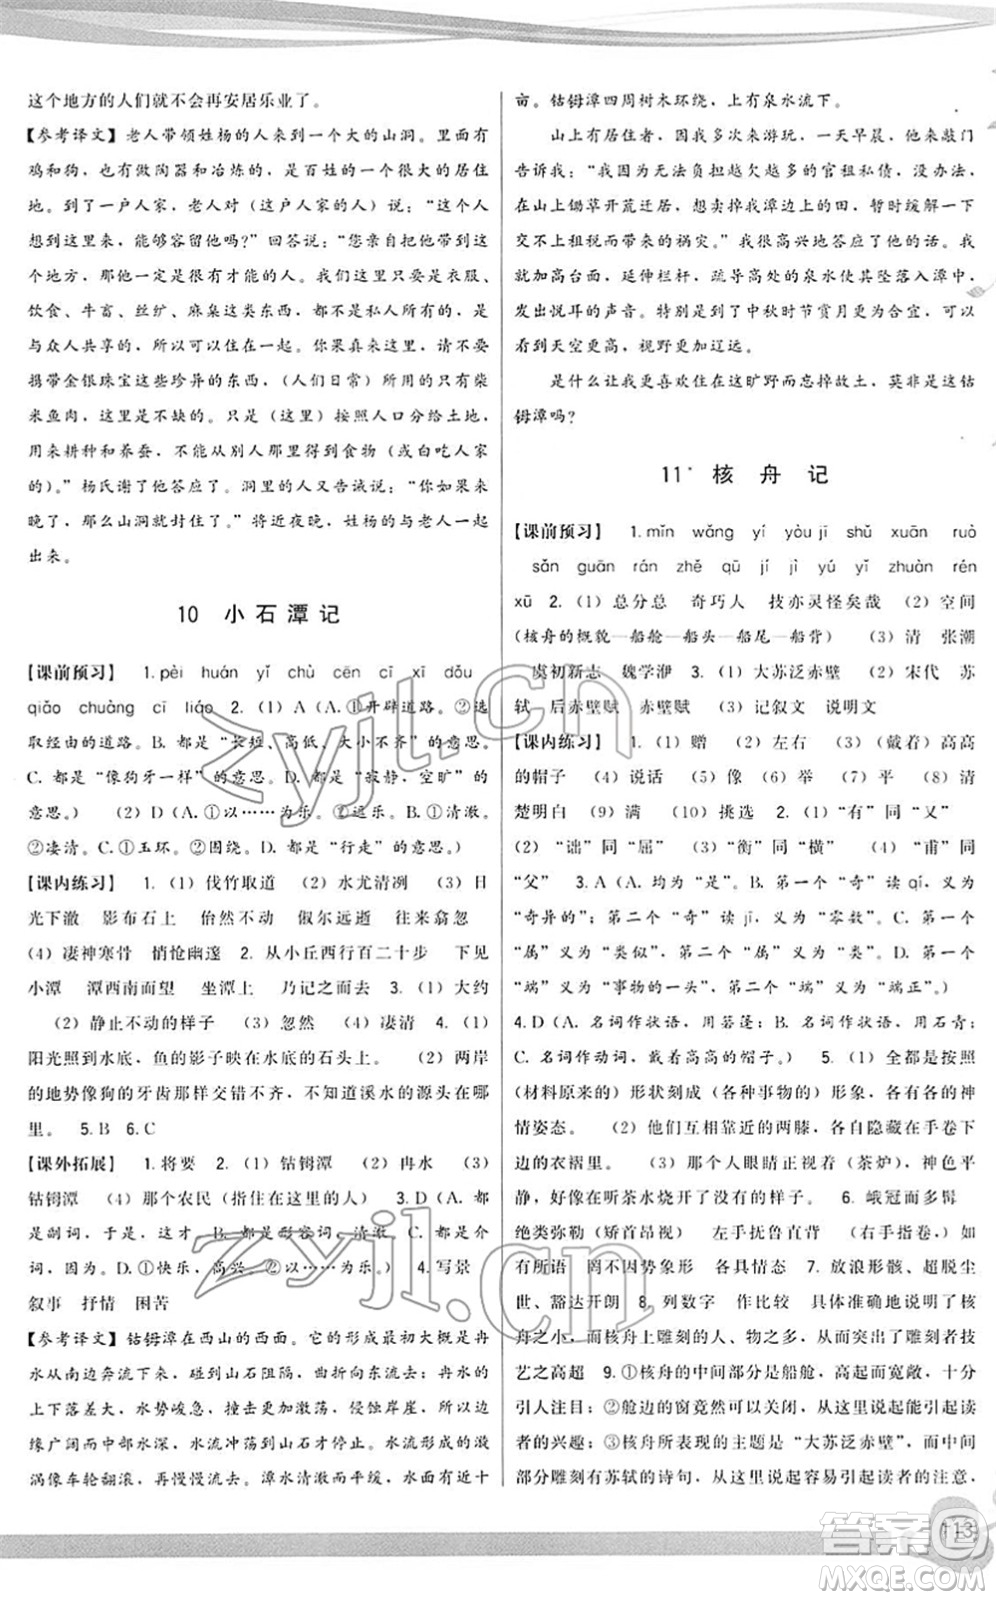 这个地方的人们就不会再安居乐业了。
【参考译文】老人带领姓杨的人来到一个大的山洞。里面有
鸡和狗，也有做陶器和冶炼的，是百姓的一个很大的居住
地。到了一户人家，老人对（这户人家的人）说：“这个人
想到这里来，能够容留他吗？”回答说：“您亲自把他带到这
个地方，那他一定是很有才能的人。我们这里只要是衣服、
饮食、牛畜、丝纩、麻枲这类东西，都不是私人所有的，是
与众人共享的，所以可以住在一起。你果真来的话，请不要
携带金银珠宝这些珍异的东西，（人们日常）所用的只有柴
米鱼肉，这里是不缺的。只是（这里）按照人口分给土地，
用来耕种和养蚕，不能从别人那里得到食物（或白吃人家
的）。”杨氏谢了他答应了。洞里的人又告诫说：“你如果来
晚了，那么山洞就封住了。”将近夜晚，姓杨的与老人一起
出来。
10 小石潭记
【课前预习】 1.pèi huán yǐ chù cēn cī xī dǒu
qiǎo chuàng cī liáo 2.（1）A（A.①开辟道路。②选
取经由的道路。B. 都是“长短、高低、大小不齐”的意思。
C. 都是“像狗牙一样”的意思。D. 都是“寂静，空旷”的
意思。）（2）D（A.①以……为乐。②逗乐。B.①清澈。
②凄清。C.①玉环。②围绕。D. 都是“行走”的意思。）
【课内练习】 1.（1）伐竹取道 （2）水尤清冽 （3）日
光下澈 影布石上 佁然不动 俶尔远逝 往来翕忽
（4）凄神寒骨 悄怆幽邃 2. 从小丘西行百二十步 下见
小潭 潭西南而望 坐潭上 乃记之而去 3.（1）大约
（2）静止不动的样子 （3）忽然 （4）凄清 4.（1）
阳光照到水底，鱼的影子映在水底的石头上。 （2）两岸
的地势像狗的牙齿那样交错不齐，不知道溪水的源头在哪
里。 5.B 6.C
【课外拓展】 1.将要 2.（1）钴鉧潭 （2）冉水 （3）
钴鉧潭 （4）那个农民（指住在这里的人） 3.D（A. 都
是副词，于是，这才。B. 都是形容词，清澈。C. 都是介
词，因为。D.①快乐，高兴。②以……为乐。） 4.写景
叙事 抒情 困苦
【参考译文】钴鉧潭在西山的西面。它的形成最初大概是冉
水从南边奔流下来，碰到山石阻隔，曲折向东流去；冉水的
上下落差大，水势峻急，撞击更加激荡，侵蚀岸崖，所以边
缘广阔而中部水深，水流冲荡到山石才停止。水流形成的漩
涡像车轮翻滚，再慢慢流去。潭水清澈而平缓，有近近十
亩。钴鉧潭四周树木环绕，上有泉水流下。
山上有居住者，因我多次来游玩，一天早晨，来敲门
告诉我：“我因为无法负担越欠越多的官租私债，没办法，
在山上锄草开荒迁居，想卖掉我潭边上的田，暂时缓解一下
交不上租税而带来的祸灾。”我很高兴地答应了他的话。我
就加高台面，延伸栏杆，疏导高处的泉水使其坠落入潭中，
发出悦耳的声音。特别是到了中秋时节赏月更为合宜，可以
看到天空更高，视野更加辽远。
是什么让我更喜欢住在这旷野而忘掉故土，莫非是这钴
鉧潭吗？
11* 核舟记
【课前预习】 1.mǐn wǎng yí yòu jī shǔ xuān ruò
sǎn guān rán zhě qū jí jì yú yǐ zhuàn rén
xū 2.（1）总分总 奇巧人 技亦灵怪矣哉 （2）空间
（核舟的概貌—船舱—船头—船尾—船背） （3）清 张潮
虞初新志 魏学洢 3.（1）大苏泛赤壁 （2）宋代 苏
轼 后赤壁赋 赤壁赋 （3）记叙文 说明文
【课内练习】 1.（1）赠 （2）左右 （3）（戴着）高高
的帽子 （4）说话 （5）像 （6）举 （7）平 （8）清
楚明白 （9）满 （10）挑选 2.（1）“有”同“又”
（2）“诎”同“屈” （3）“衡”同“横” （4）“甫”同
“父” 3.A（A. 均为“是”。B. 第一个“奇”读 qí，义为
“奇异的”；第二个“奇”读 jī，义为“零数”。C. 第一个
“属”义为“类似”，第二个“属”义为“类”。D. 第一个
“端”义为“事物的一头”，第二个“端”义为“端正”。）
4.D（A. 名词作状语，用箬篷；B. 名词作状语，用石青；
C. 名词作动词，戴着高高的帽子。） 5.（1）全都是按照
（材料原来的）形状刻成（各种事物的）形象，各有各的神
情姿态。 （2）他们互相靠近的两膝，各自隐藏在手卷下
边的衣褶里。 （3）那个人眼睛正视着（茶炉），神色平
静，好像在听茶水烧开了没有的样子。 6. 峨冠而多髯
绝类弥勒（矫首昂视） 左手抚鲁直背 （右手指卷，）如
有所语 罔不因势象形 各具情态 7. 放浪形骸、超脱尘
世、豁达开朗 8. 列数字 作比较 具体准确地介绍了核
舟之小，而核舟上雕刻的人、物之多，突出了雕刻者技
艺之高超 9.①核舟的中间部分是船舱，高起而宽敞，十分
引人注目；②舱边的窗竟然可以关闭，从这里说起能引起读者
的兴趣；③核舟所表现的主题是“大苏泛赤壁”，而中间
部分雕刻有苏轼的诗句，从这里说起容易引起读者的注意，
113
答案圈
MXQE.COM
zyjl.cn
zyjl.cn